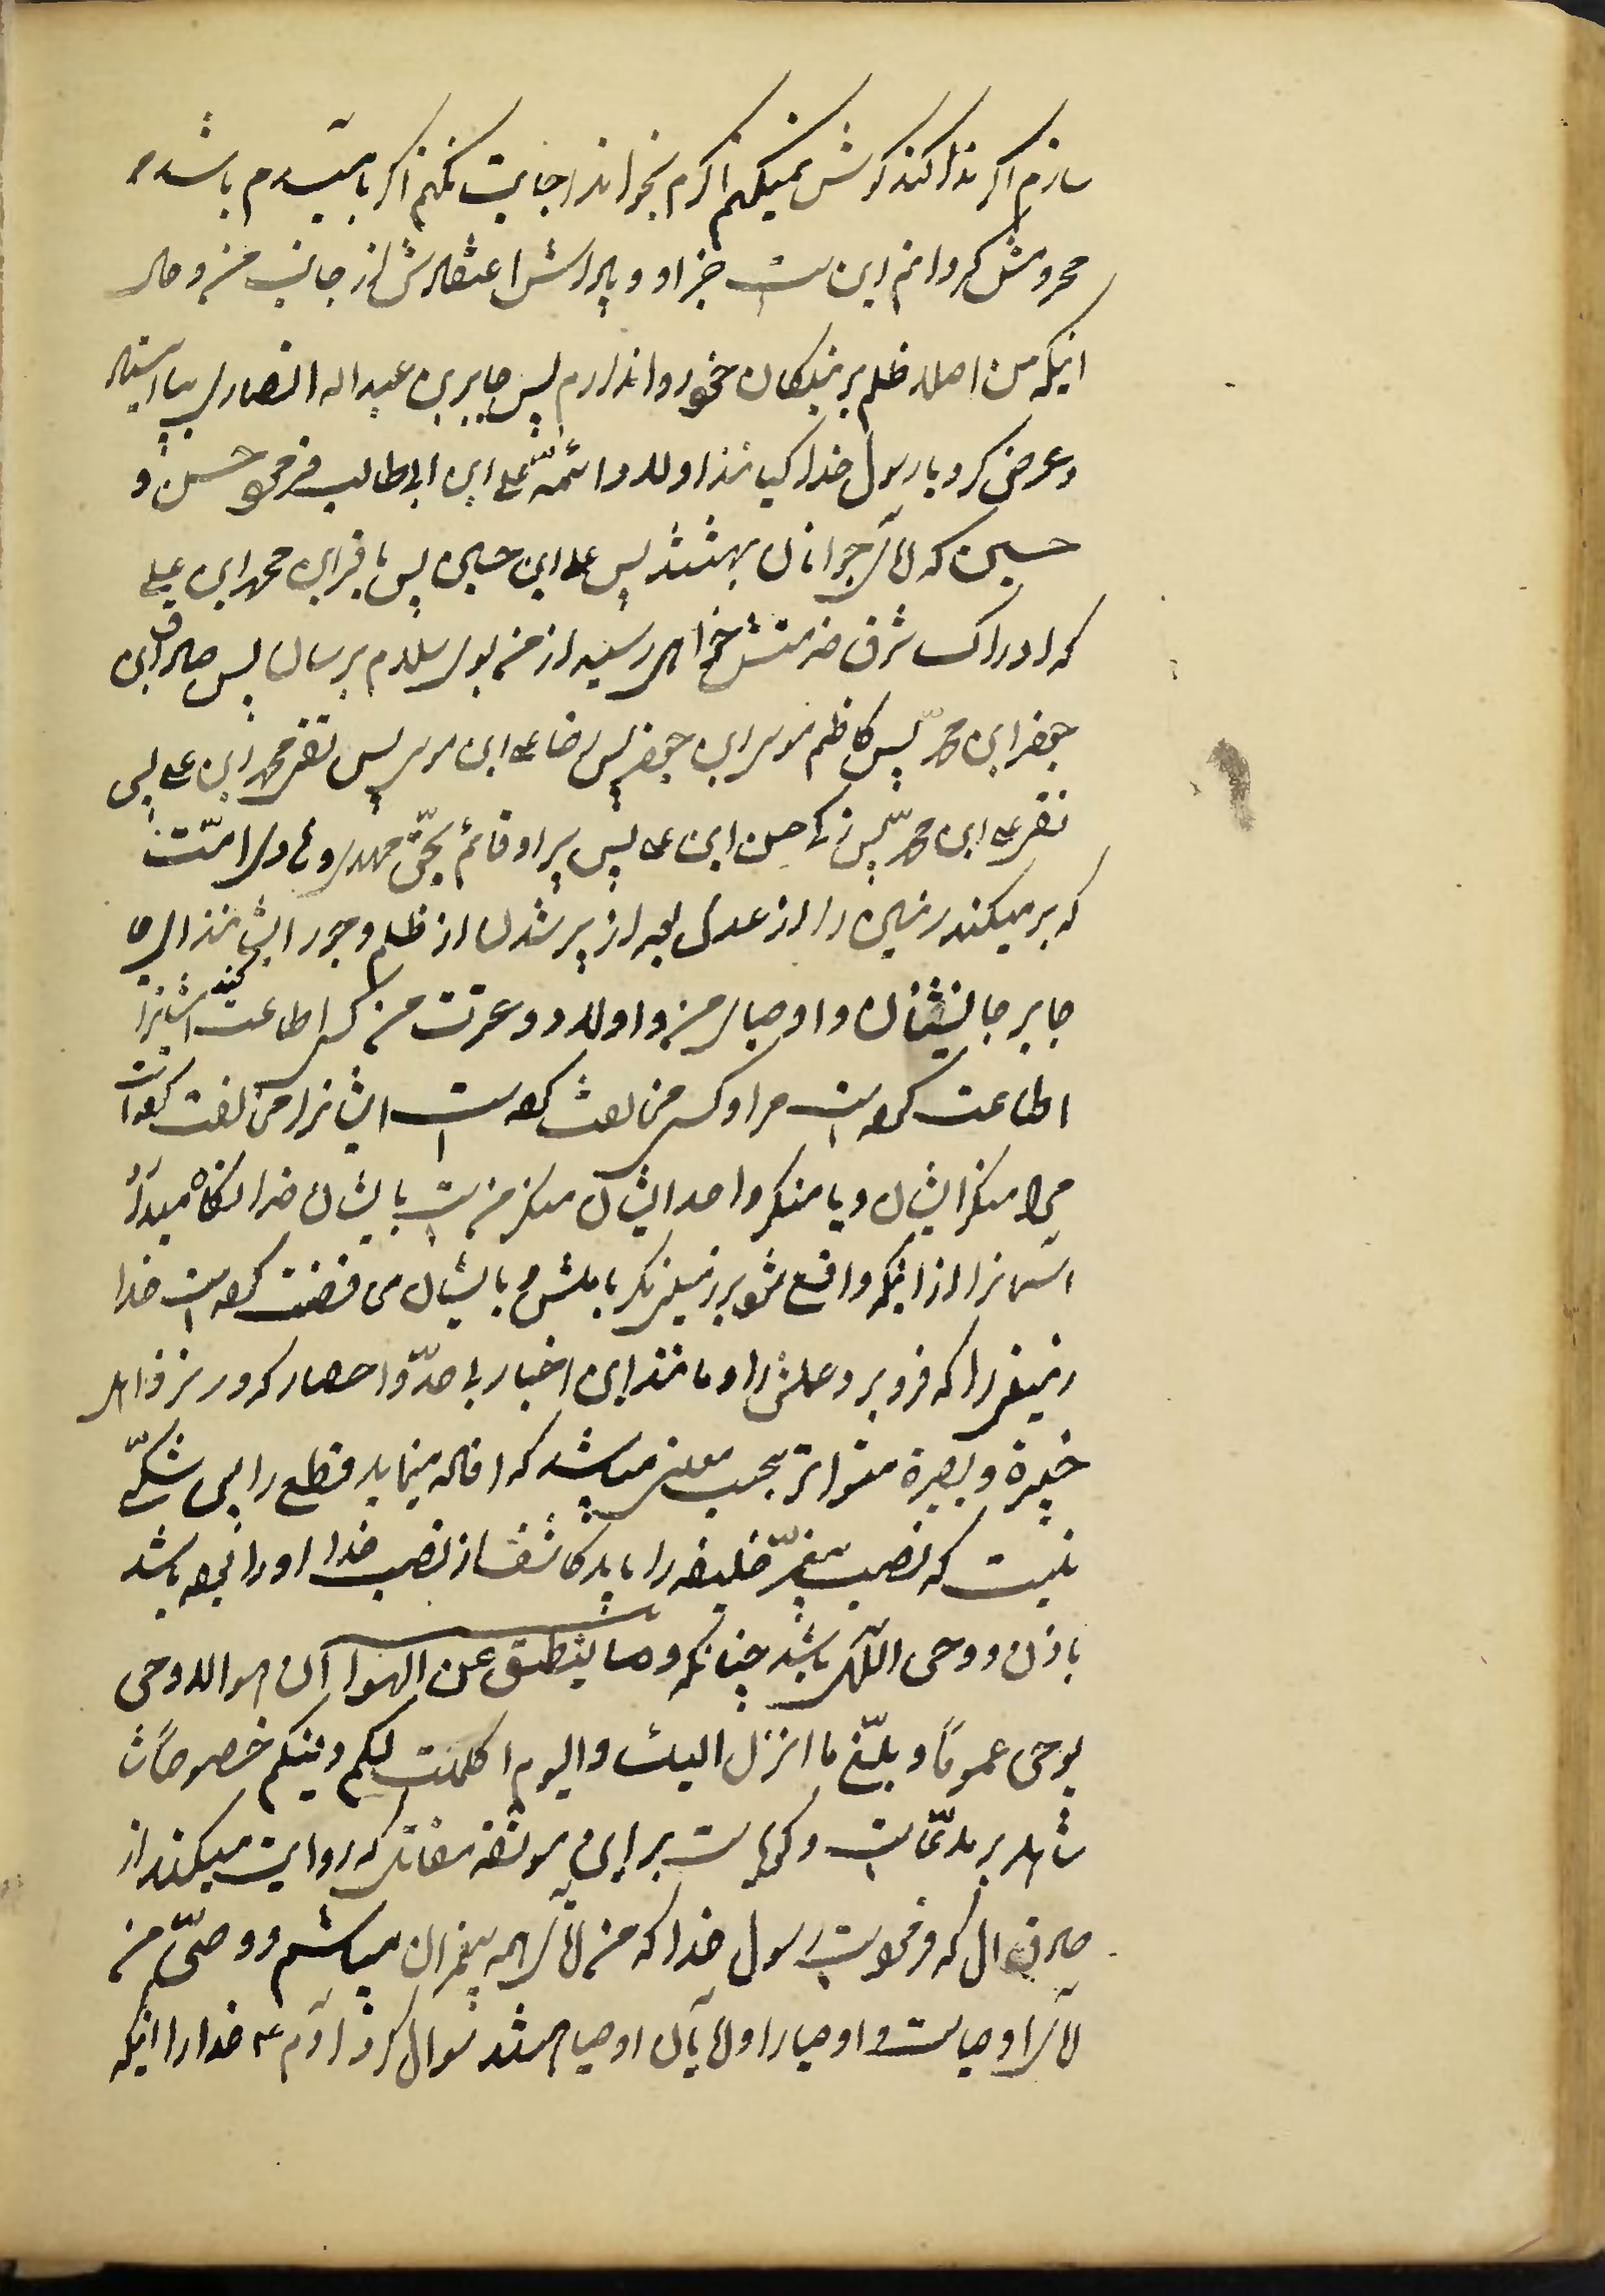 سازم اگر ندا کند گوش نمیکنم اگرم بخواند اجابت نکنم اگر بامیدم باشد
محرومش گردانم این است جزا و پاداش اعتقادش از جانب من و حال
اینکه من اصلا ظلم بر بندگان خود روا ندارم پس جابر بن عبداله انصاری بپا ایستاد
و عرض کرد یا رسول خدا کیانند اولاد وائمّه علی ابن ابی طالب فرمود حسن و
حسین که آقای جوانان بهشتند پس علی ابن حسین پس باقر ابن محمد ابن علی
که ادراک شرف خدمتش خواهی رسید از من بوی سلام برسان پس صادق ابن
جعفر ابن محمد پس کاظم موسی ابن جعفر پس رضا علی ابن موسی پس تقی محمد ابن علی پس
نقی علی ابن محمد پس زکی حسن ابن علی پس پسر او قائم بحق مهدی و هادی امّت
که پر میکند زمین را از عدل بعد از پر شدن از ظلم و جور ایشانند ای
جابر جانشینان و اوصیای من و اولاد و عترت من کسی اطاعت کند ایشانرا
اطاعت کرده است مرا و کسی مخالفت کرده است ایشانرا مخالفت کرده است
مرا منکر ایشان و یا منکر واحد ایشان منکر من است بایشان خدا نگاه میدارد
آسمانرا از اینکه واقع شود بر زمین مگر باذنش و بایشان محافظت کرده است خدا
زمین را که فرو برد اهلش را و مانند این اخبار بی حدّ و احصار که در نزد اهل
خبرة و بصیرة متواتر بحسب معنی میباشد که افاده مینماید قطع را پس شکّی
نیست که نصب پیغمبر خلیفه را باید کاشف از نصب خدا او را بوده باشد
باذن و وحی اللّهی باشد چنانکه وما ینطق عن الهوا ان هو الا وحی
یوحی عموماً و بلّغ ما انزل الیک و الیوم اکملت لکم دینکم خصوصاً
شاهد بر مدّعاست و گویاست بر این موثقه مقاتل که روایت میکند از
صادق آل که فرموده است رسول خدا که من آقای همه پیغمبران میباشم و وصیّ من
آقای اوصیاست و اوصیاء او آقایان اوصیاء هستند سوال کرد آدم ع خدا را اینکه